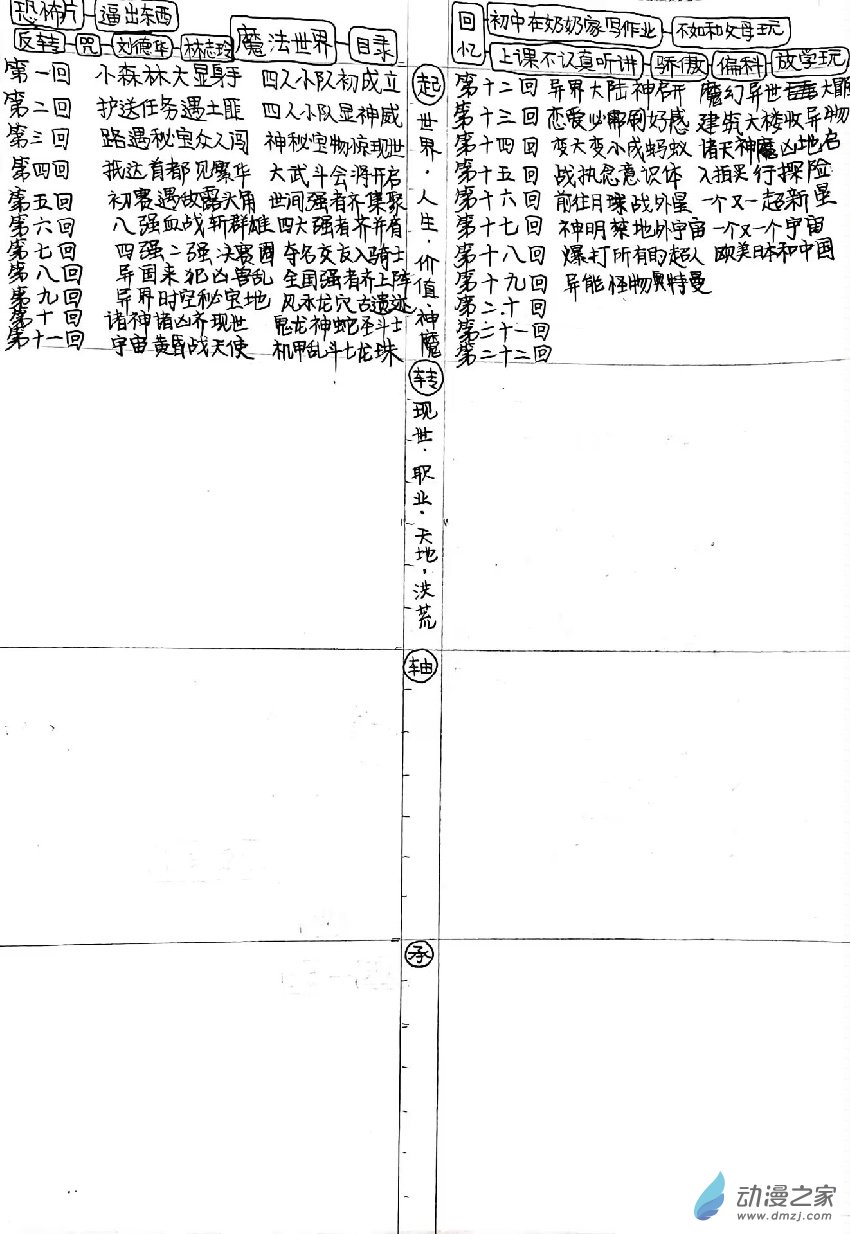 恐怖片 逼出东西
反转 咒 刘德华 林志玲 魔法世界 目录
回忆 初中在奶奶家写作业 不如和父母玩
上课不认真听讲 骄傲 偏科 放学玩
第一回 小森林大显身手 四人小队初成立
第二回 护送任务遇土匪 四人小队显神威
第三回 路遇秘宝众人闯 神秘宝物惊现世
第四回 抵达首都见繁华 大武斗会将开启
第五回 初赛遇敌露头角 世间强者齐集聚
第六回 八强血战斩群雄 四大强者齐并肩
第七回 四强二强决赛圈 夺名交友入骑士
第八回 异国来犯凶兽乱 全国强者齐上阵
第九回 异界时空秘宝地 风水龙穴古遗迹
第十回 诸神诸凶齐现世 鬼龙神蛇圣斗士
第十一回 宇宙黄昏战天使 机甲乱斗七龙珠
起
世界·人生·价值·神魔
第十二回 异界大陆神启开 魔幻异世
第十三回 恋爱必需刷好感 建筑大楼收异物
第十四回 变大变小成蚂蚁 诸天神魔凶地名
第十五回 战执念意识体 入指关行探险
第十六回 前往月球战外星 一个又一超新星
第十七回 神明莱地外宇宙 一个又一个宇宙
第十八回 爆打所有的超人 欧美日本和中国
第十九回 异能怪物奥特曼
第二十回
第二十一回
第二十二回
转
现世·职业·天地·洪荒
轴
承
动漫之家
www.dmzj.com